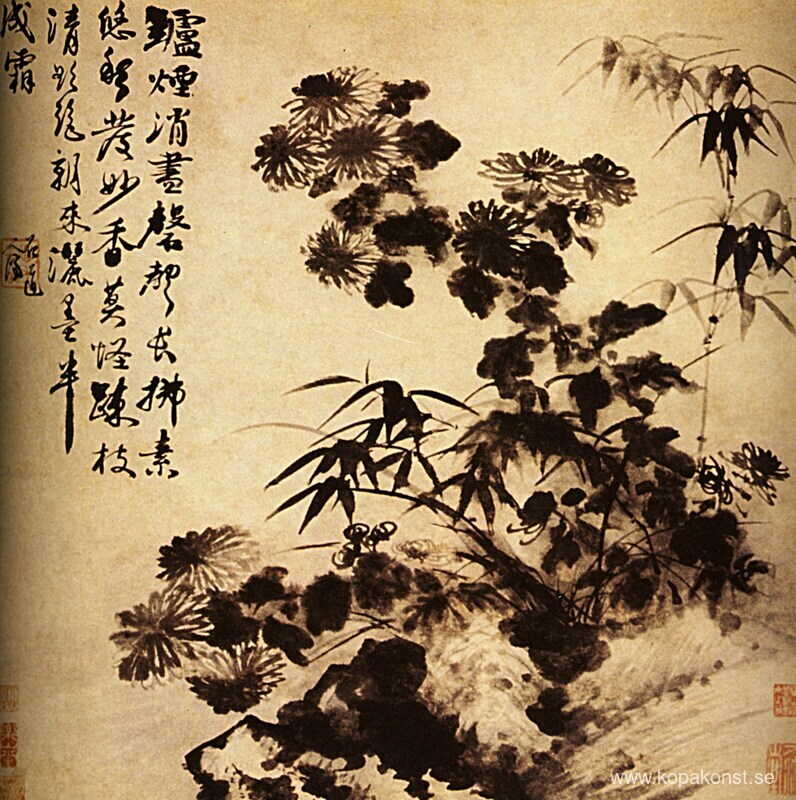 鑪煙消晝磬聲長拂素
悠然發妙香莫怪踈枝
清影亂朝來灑墨半
成霜
石道人濟
www.kopakonst.se